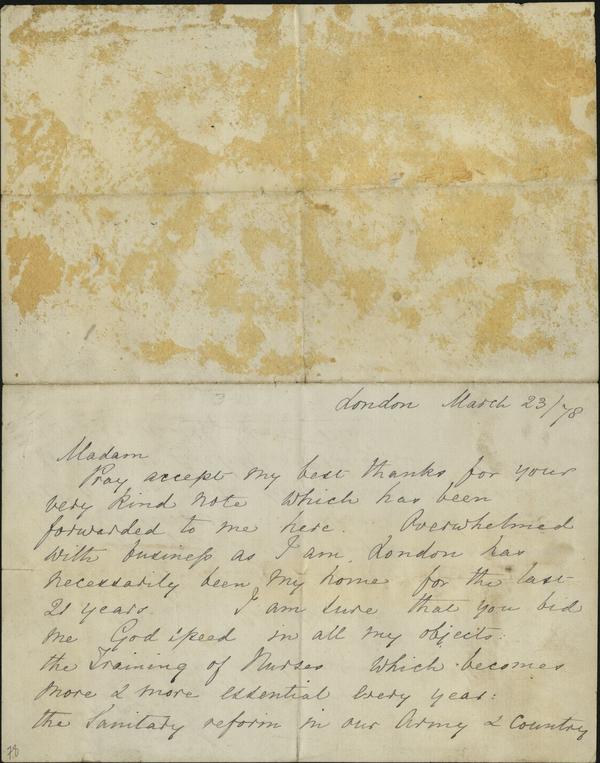 London March 23/78
Madam
Pray accept my best thanks for your
very kind note which has been
forwarded to me here. Overwhelmed
with business as I am, London has
necessarily been my home for the last
21 years. I am sure that you bid
me God speed in all my objects:
the Training of Nurses which becomes
more & more essential every year:
the Sanitary reform in our Army & Country
78